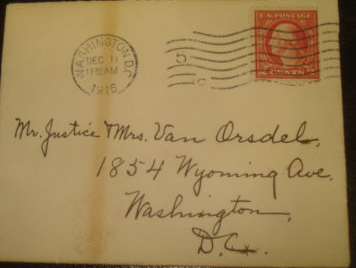 WASHINGTON, D.C.
DEC 11
11 30 AM
1916
5
U.S. POSTAGE
2 CENTS 2
Mr. Justice & Mrs. Van Orsdel,
1854 Wyoming Ave.
Washington,
D.C.